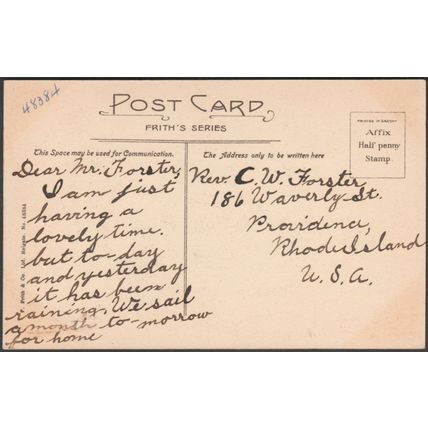 48384
POST CARD
FRITH'S SERIES
PRINTED IN SAXONY
Affix
Half penny
Stamp.
This Space may be used for Communication.
The Address only to be written here
Dear Mr. Forster,
I am just
having a
lovely time.
but to-day
and yesterday
it has been
raining. We sail
a month to-morrow
for home
Rev C. W. Forster,
186 Waverly St.
Providence,
Rhode Island
U. S. A.
Frith & Co. Ltd. Reigate. No.